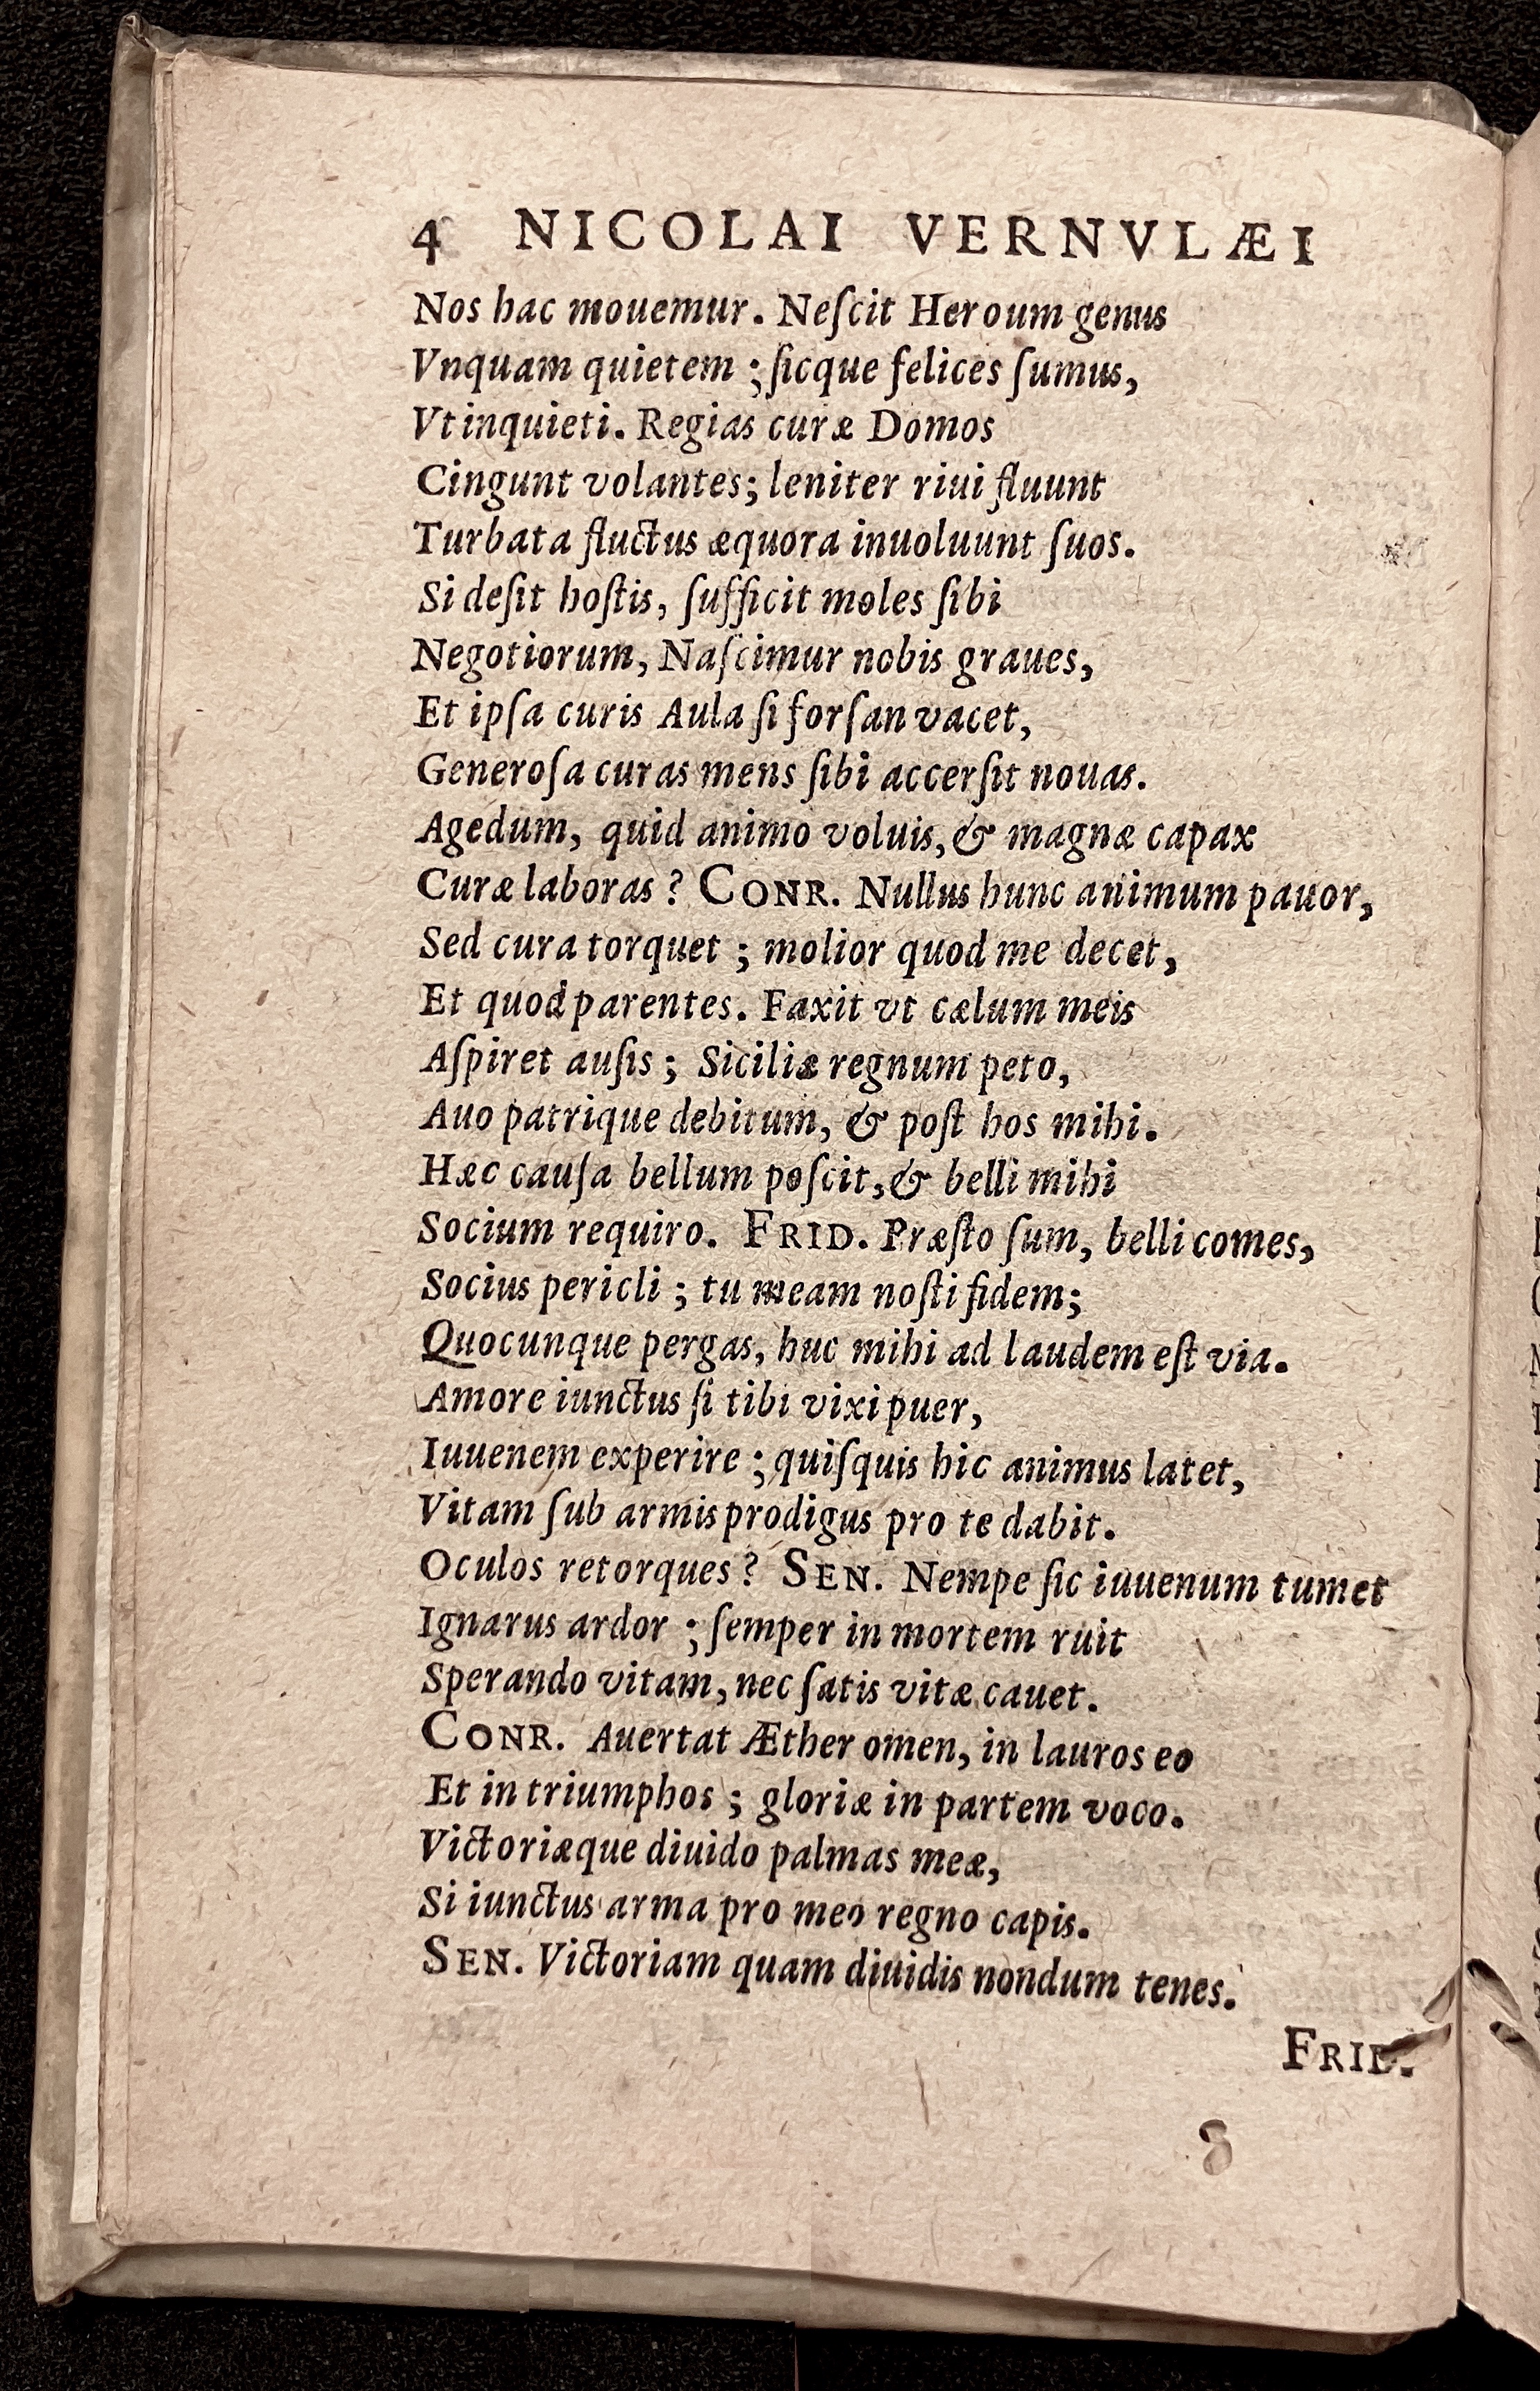 4 NICOLAI VERNVLÆI
Nos hac mouemur. Neſcit Heroum genus
Vnquam quietem ; ſicque felices ſumus,
Vt inquieti. Regias curæ Domos
Cingunt volantes; leniter riui fluunt
Turbata fluctus æquora inuoluunt ſuos.
Si deſit hoſtis, ſufficit moles ſibi
Negotiorum, Naſcimur nobis graues,
Et ipſa curis Aula ſi forſan vacet,
Generoſa curas mens ſibi accerſit nouas.
Agedum, quid animo voluis, & magnæ capax
Curæ laboras ? CONR. Nullus hunc animum pauor,
Sed cura torquet ; molior quod me decet,
Et quod parentes. Faxit vt cælum meis
Aſpiret auſis ; Siciliæ regnum peto,
Auo patrique debitum, & poſt hos mihi.
Hæc cauſa bellum poſcit, & belli mihi
Socium requiro. FRID. Præſto ſum, belli comes,
Socius pericli ; tu meam noſti fidem;
Quocunque pergas, huc mihi ad laudem eſt via.
Amore iunctus ſi tibi vixi puer,
Iuuenem experire ; quiſquis hic animus latet,
Vitam ſub armis prodigus pro te dabit.
Oculos retorques ? SEN. Nempe ſic iuuenum tumet
Ignarus ardor ; ſemper in mortem ruit
Sperando vitam, nec ſatis vitæ cauet.
CONR. Auertat Æther omen, in lauros eo
Et in triumphos ; gloriæ in partem voco.
Victoriæque diuido palmas meæ,
Si iunctus arma pro meo regno capis.
SEN. Victoriam quam diuidis nondum tenes.
FRID.